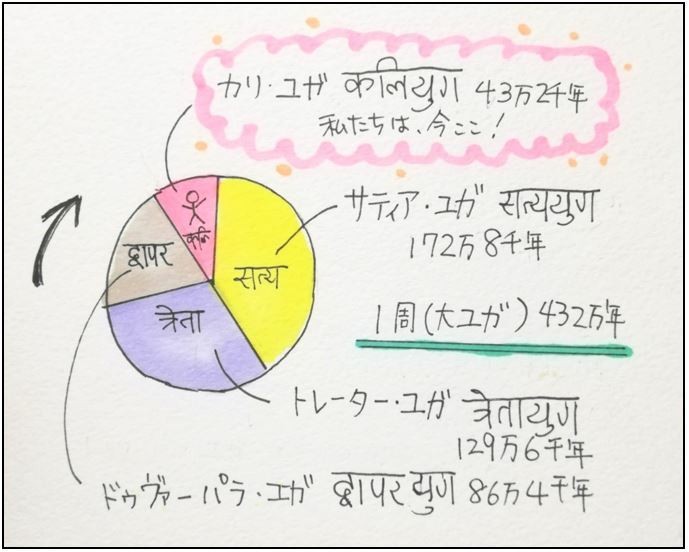 カリ・ユガ कलियुग 43万2千年
私たちは、今ここ!
サティア・ユガ सत्ययुग
172万8千年
द्वापर
कलि
सत्य
त्रेता
1周(大ユガ) 432万年
トレーター・ユガ त्रेतायुग
129万6千年
ドゥヴァーパラ・ユガ द्वापरयुग 86万4千年